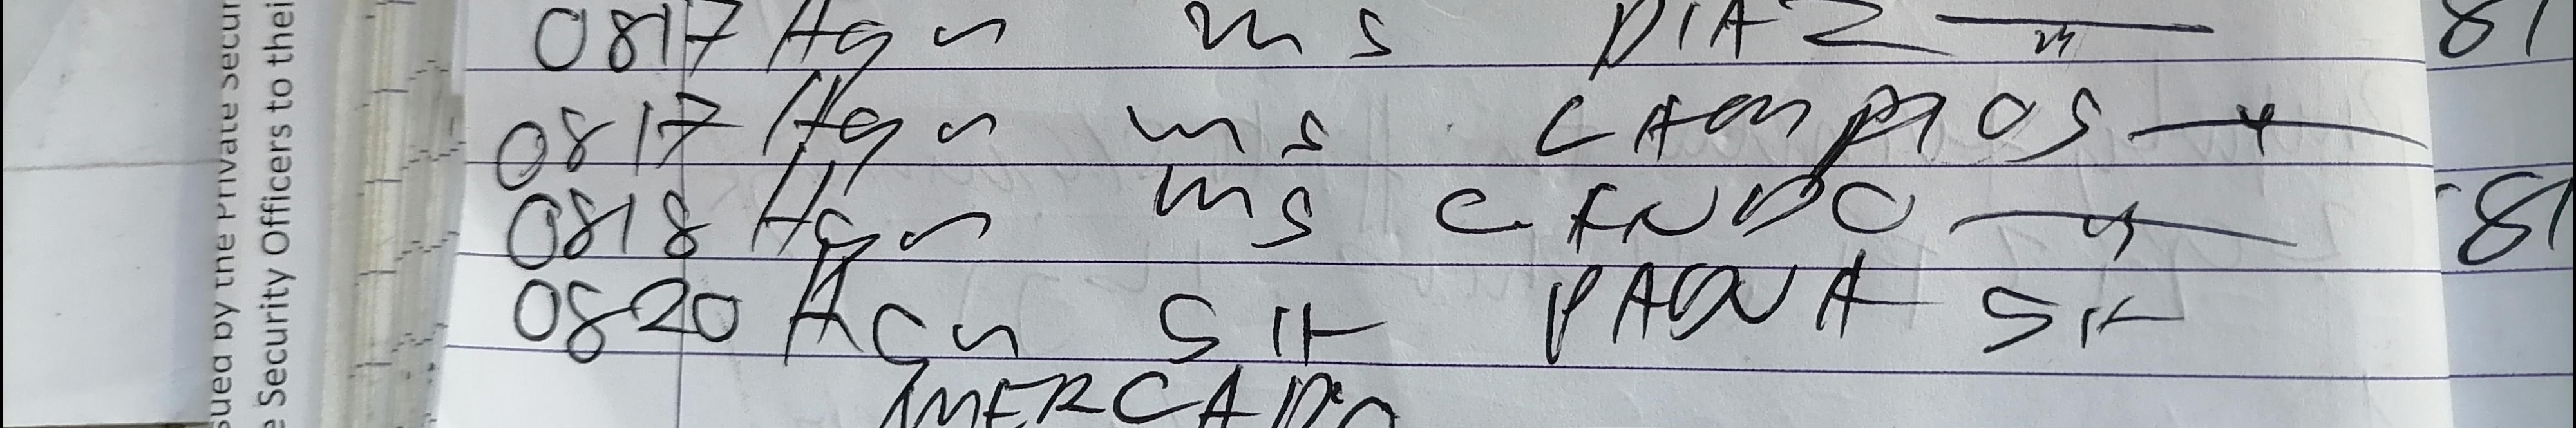 sued by the Private Secur
e Security Officers to thei
0817 Hgn ms DIAZ
0817 Hgn ms CAMPOS
0818 Hgn ms CANDO
0820 Hgn SIT SIT
MERCADO
81
81